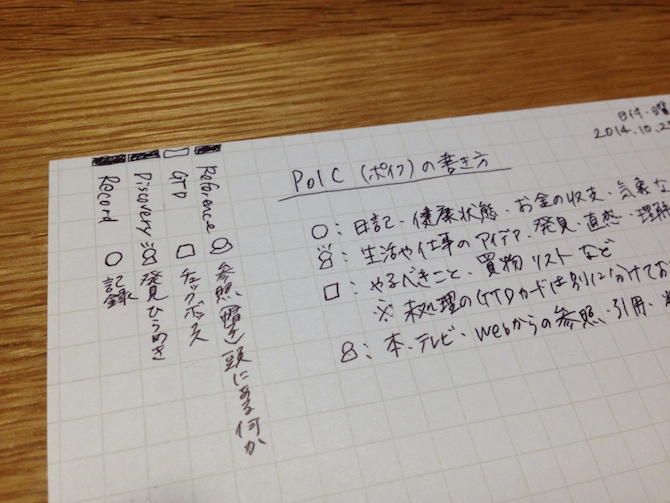 日付・曜
2014.10.25
PoIC (ポイク) の書き方
○: 日記・健康状態・お金の収支・気象な
: 生活や仕事のアイデア・発見・直感・理解
□: やるべきこと・買物リストなど
※ 未処理のGTDカードは別に分けてお
: 本・テレビ・Webからの参照・引用・
Reference 参照 頭にある何か
GTD □ チェックボックス
Discovery 発見ひらめき
Record ○ 記録